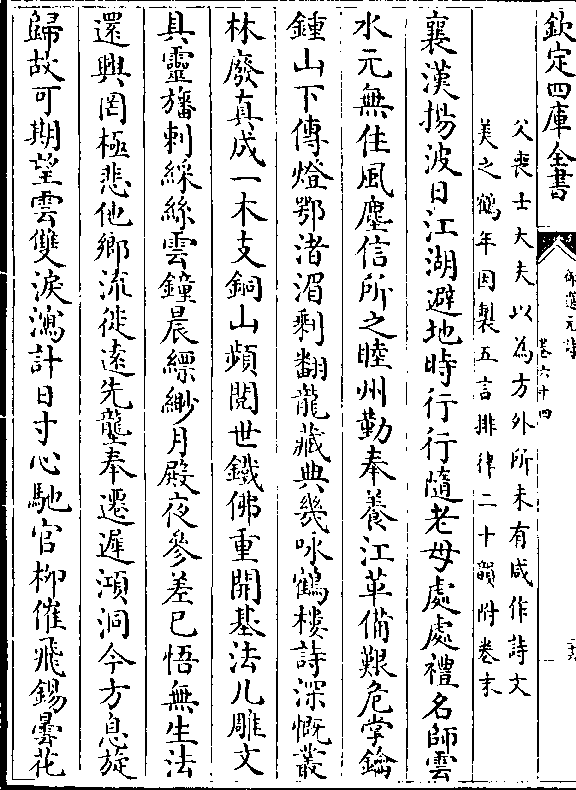 欽定四庫全書
御選元詩
卷六十四
父喪士大夫以為方外所未有咸作詩文
美之鶴年因製五言排律二十韻附卷末
襄漢揚波日江湖避地時行行隨老母處處禮名師雲
水元無住風塵信所之睦州勤奉養江革備艱危掌鑰
鍾山下傳燈鄂渚湄剩翻龍藏典幾咏鶴樓詩深慨叢
林廢真成一木支銅山頻閱世鐵佛重開基法几雕文
具靈旛刺綵絲雲鐘晨縹緲月殿夜參差已悟無生法
還興罔極悲他鄉流徙遠先壟奉遷遲澒洞今方息旋
歸故可期望雲雙淚瀉計日寸心馳官柳催飛錫曇花